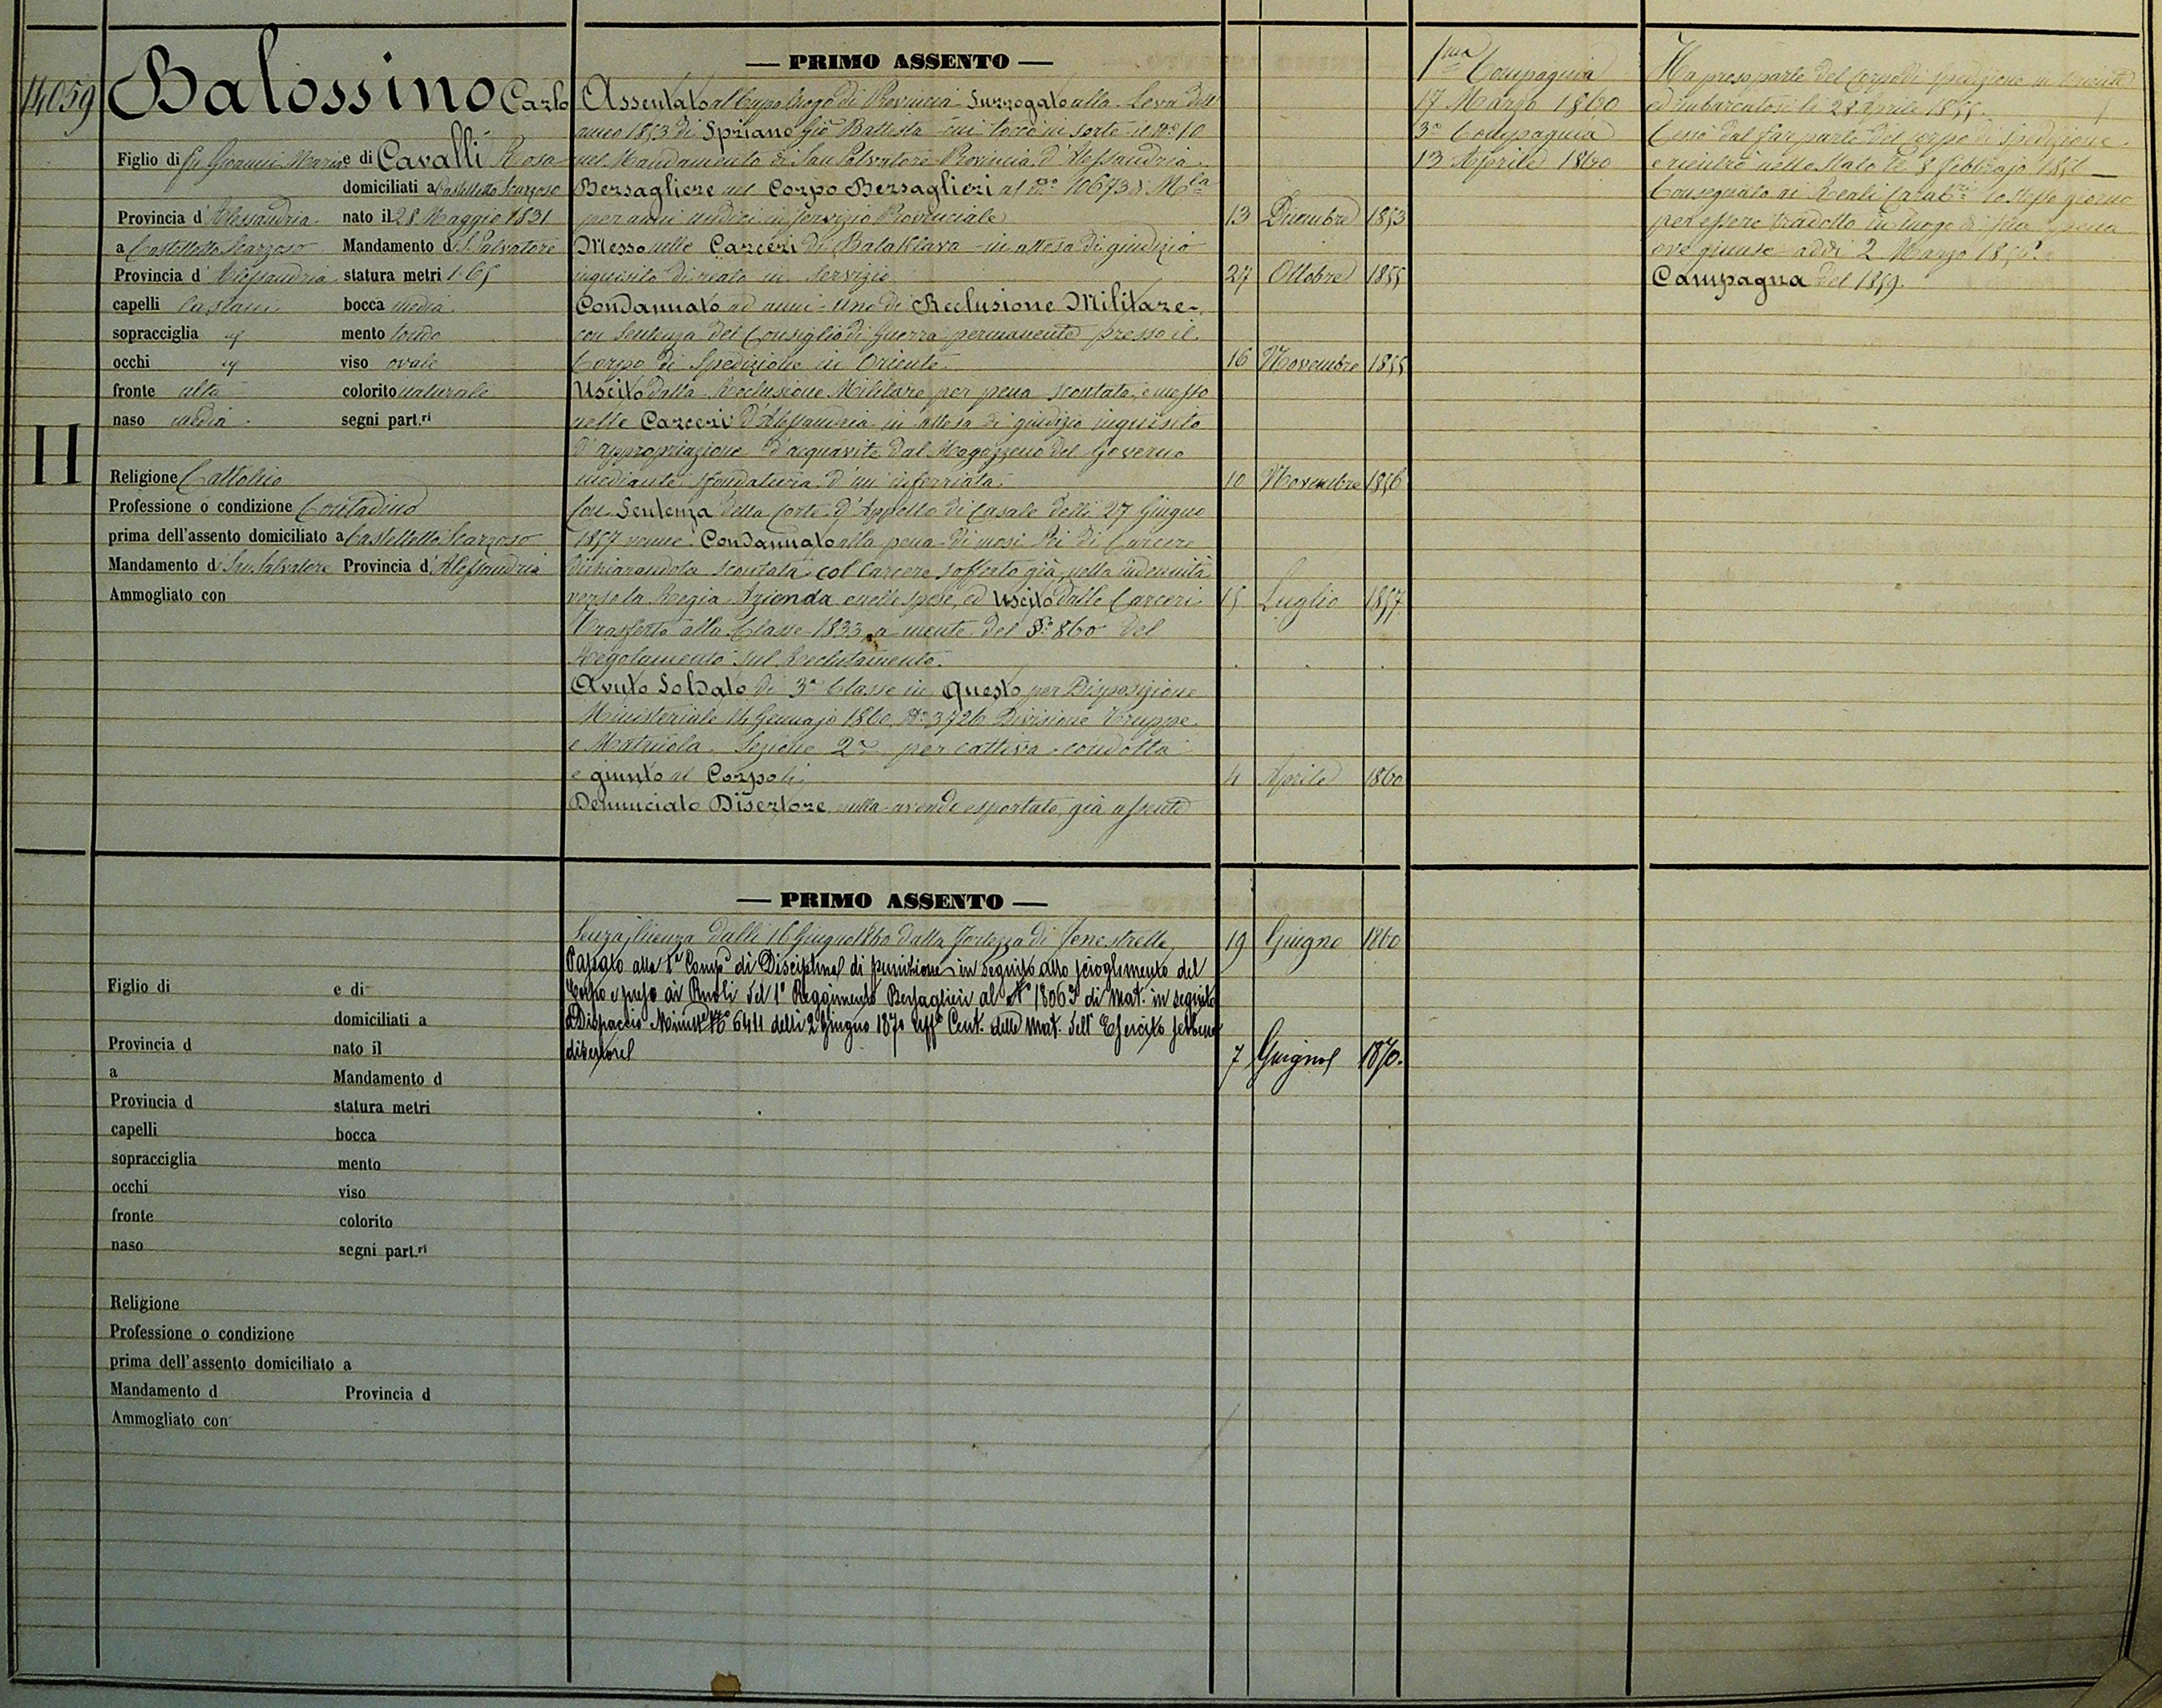 14059
Balossino Carlo
Figlio di fu Giovanni Maria e di Cavalli Rosa
domiciliati a Castelletto Scazzoso
Provincia d'Alessandria nato il 28 Maggio 1831
a Castelletto Scazzoso Mandamento di S. Salvatore
Provincia d'Alessandria statura metri 1.65
capelli Castani bocca media
sopracciglia id mento tondo
occhi id viso ovale
fronte alta colorito naturale
naso media segni part.ri
II
Religione Cattolico
Professione o condizione Contadino
prima dell'assento domiciliato a Castelletto Scazzoso
Mandamento di San Salvatore Provincia d'Alessandria
Ammogliato con
— PRIMO ASSENTO —
Assentato al Capoluogo di Provincia Surrogato alla Leva dell'
anno 1853 di Spriano Gio Battista cui toccò in sorte il No 10
nel Mandamento di San Salvatore Provincia d'Alessandria.
Bersagliere nel Corpo Bersaglieri al No 10673 di Mla
per anni undici in servizio Provinciale 13 Dicembre 1853
Messo nelle Carceri di Balaklava in attesa di giudizio
inquisito di reato in servizio 27 Ottobre 1855
Condannato ad anni uno di Reclusione Militare
con Sentenza del Consiglio di Guerra permanente presso il
Corpo di Spedizione in Oriente. 16 Novembre 1855
Uscito dalla Reclusione Militare per pena scontata, e messo
nelle Carceri d'Alessandria in attesa di giudizio inquisito
d'appropriazione d'acquavite dal Magazzeno del Governo
mediante sfondatura d'un'inferriata. 10 Novembre 1856
Con Sentenza della Corte d'Appello di Casale delli 27 Giugno
1857 venne Condannato alla pena di mesi sei di Carcere
dichiarandola scontata col Carcere sofferto già, nella indennità
verso la Regia Azienda e nelle spese, ed Uscito dalle Carceri 15 Luglio 1857
Trasferto alla Classe 1833 a mente del § 860 del
Regolamento sul Reclutamento.
Avuto Soldato di 3a Classe in questo per Disposizione
Ministeriale 14 Gennajo 1860 No 3726 Divisione Truppe
e Matricola Sezione 2a per cattiva condotta
e giunto al Corpo li 4 Aprile 1860
Denunciato Disertore nulla avendo esportato, già assente
1ma Compagnia
17 Marzo 1860
3a Compagnia
13 Aprile 1860
Ha preso parte del Corpo di spedizione in Oriente
ed imbarcatosi li 28 Aprile 1855.
Cessò dal far parte del corpo di spedizione
e rientrò nello Stato li 8 Febbrajo 1856
Consegnato ai Reali Carabri lo stesso giorno
per essere tradotto in luogo di sua pena
ove giunse addì 2 Marzo 1856.
Campagna del 1859.
— PRIMO ASSENTO —
Senza licenza dalli 16 Giugno 1860 dalla Fortezza di Fenestrelle, 19 Giugno 1860
Passato alla 1a Compa di Disciplina di punizione in seguito allo scioglimento del
Corpo e preso ai Ruoli del 1o Reggimento Bersaglieri al No 18063 di Mat. in seguito
a Dispaccio Ministe No 6411 delli 2 Giugno 1870 Uffo Cent. delle Mat. dell'Esercito sebbene
disertore 7 Giugno 1870.
Figlio di e di
domiciliati a
Provincia d nato il
a Mandamento d
Provincia d statura metri
capelli bocca
sopracciglia mento
occhi viso
fronte colorito
naso segni part.ri
Religione
Professione o condizione
prima dell'assento domiciliato a
Mandamento d Provincia d
Ammogliato con